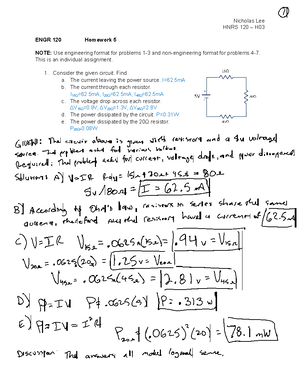 Nicholas Lee
HNRS 120 – H03
ENGR 120 Homework 5
NOTE: Use engineering format for problems 1-3 and non-engineering format for problems 4-7.
This is an individual assignment.
1. Consider the given circuit. Find
a. The current leaving the power source. I=62.5mA
b. The current through each resistor.
c. The voltage drop across each resistor.
d. The power dissipated by the circuit. P=0.31W
e. The power dissipated by the 20Ω resistor.
5V
GIVEN: The circuit above is given with resistors and a 5v voltage
source. The problem asks for various values
Required: The problem asks for current, voltage drops, and power dissipated
Solutions: A) V=IR Req= 15Ω+20Ω+45Ω = 80Ω
5v/80Ω = I = 62.5 mA
B] According to Ohm's law, resistors in series share the same
current, therefore all the resistors have a current of 62.5mA
C) V=IR V15Ω = .0625(15Ω) = .94v = V15Ω
V20Ω = .0625(20) = 1.25v = V20Ω
V45Ω = .0625(45Ω) = 2.81v = V45Ω
D) P=IV P= .0625(5) P= .313w
E) P=IV = I²R
P20Ω = (.0625)²(20) = 78.1 mW
Discussion: The answers all make logical sense.